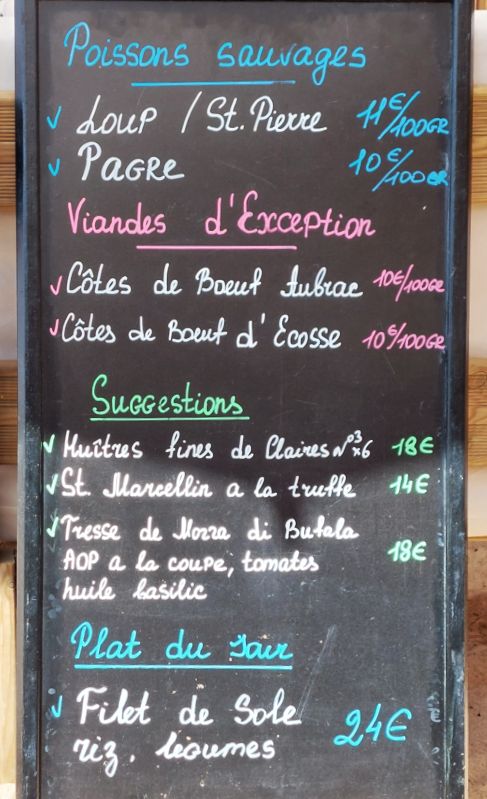 Poissons sauvages
Loup / St. Pierre 11€/100GR
Pagre 10€/100GR
Viandes d'Exception
Côtes de Boeuf Aubrac 10€/100GR
Côtes de Boeuf d'Ecosse 10€/100GR
Suggestions
Huîtres fines de Claires N°3 x6 18€
St. Marcellin a la truffe 14€
Tresse de Mozza di Bufala
AOP a la coupe, tomates 18€
huile basilic
Plat du Jour
Filet de Sole 24€
riz, legumes